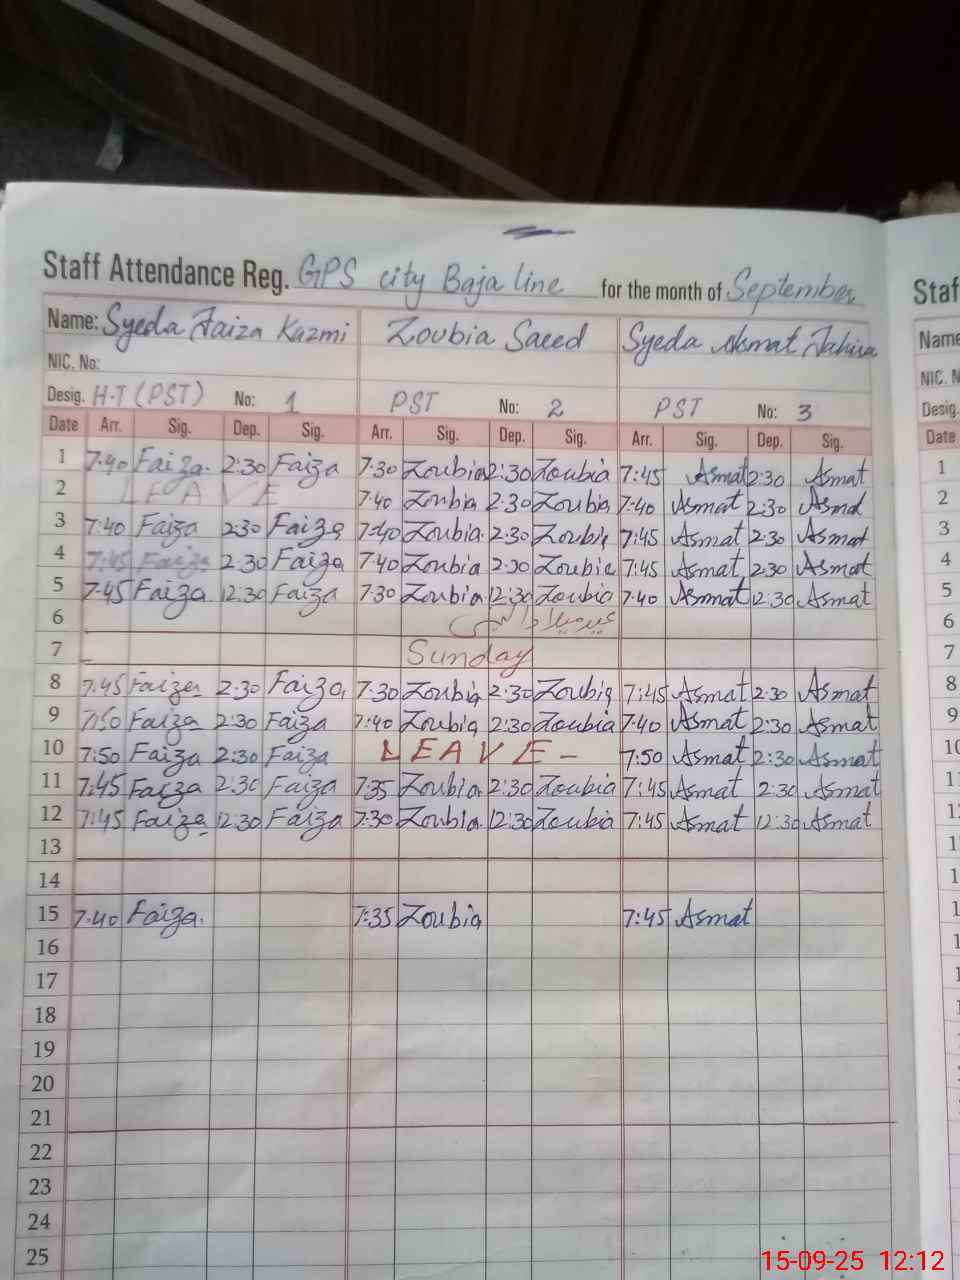 Staff Attendance Reg. GPS city Baja line for the month of September
Name: Syeda Faiza Kazmi Zoubia Saeed Syeda Asmat Tahira
NIC. No:
Desig. H-T (PST) No: 1 PST No: 2 PST No: 3
Date Arr. Sig. Dep. Sig. Arr. Sig. Dep. Sig. Arr. Sig. Dep. Sig.
1 7:40 Faiza. 2:30 Faiza 7:30 Zoubia 2:30 Zoubia 7:45 Asmat 2:30 Asmat
2 LEAVE 7:40 Zoubia 2:30 Zoubia 7:40 Asmat 2:30 Asmat
3 7:40 Faiza 2:30 Faiza 7:40 Zoubia. 2:30 Zoubia 7:45 Asmat 2:30 Asmat
4 7:45 Faiza 2:30 Faiza 7:40 Zoubia 2:30 Zoubia 7:45 Asmat 2:30 Asmat
5 7:45 Faiza 12:30 Faiza 7:30 Zoubia 12:30 Zoubia 7:40 Asmat 12:30 Asmat
6 عید میلاد النبی
7 Sunday
8 7:45 Faiza 2:30 Faiza, 7:30 Zoubia 2:30 Zoubia 7:45 Asmat 2:30 Asmat
9 7:50 Faiza 2:30 Faiza 7:40 Zoubia 2:30 Zoubia 7:40 Asmat 2:30 Asmat
10 7:50 Faiza 2:30 Faiza LEAVE - 7:50 Asmat 2:30 Asmat
11 7:45 Faiza 2:30 Faiza 7:35 Zoubia 2:30 Zoubia 7:45 Asmat 2:30 Asmat
12 7:45 Faiza 12:30 Faiza 7:30 Zoubia. 12:30 Zoubia 7:45 Asmat 12:30 Asmat
13
14
15 7:40 Faiza. 7:35 Zoubia 7:45 Asmat
16
17
18
19
20
21
22
23
24
25
Staf
Name
NIC. N
Desig.
Date
1
2
3
4
5
6
7
8
9
10
11
15-09-25 12:12